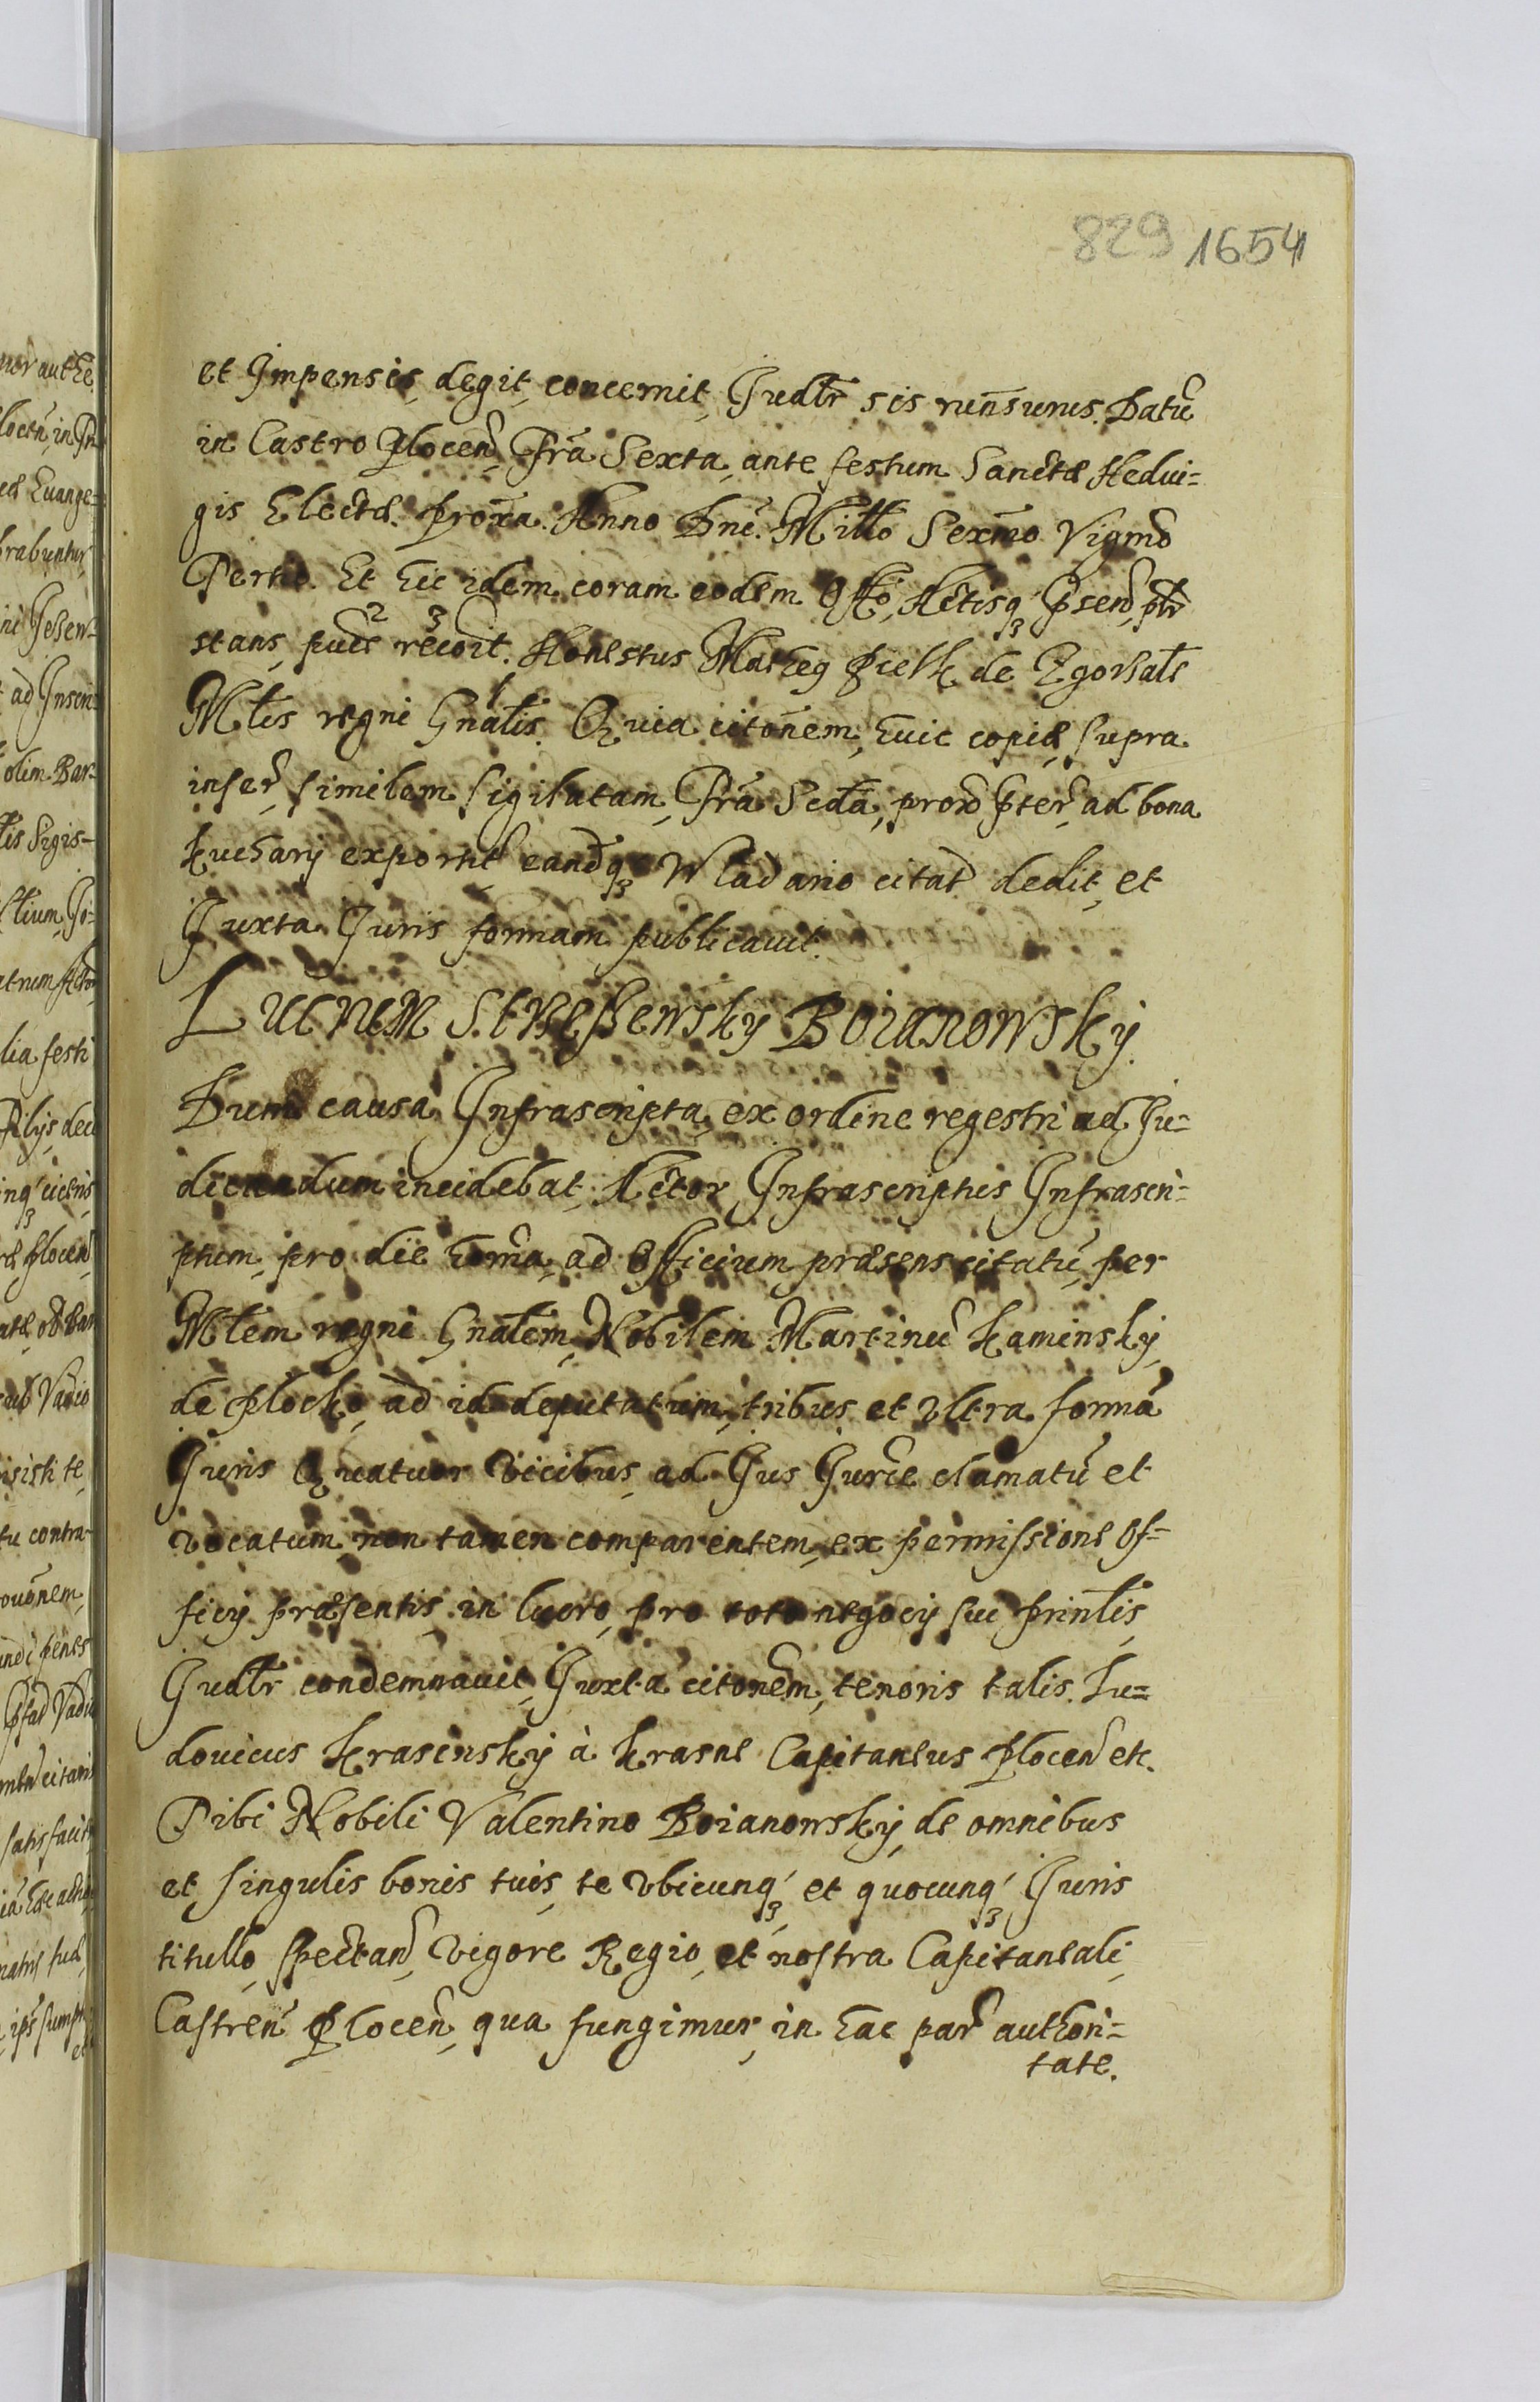 829 1654
et Impensis, degit, concernit, Iudłr sis rūnsurus. Datū
in Castro Plocen̄, Fr̄a Sexta, ante festum Sanctæ Hedui-
gis Electæ. prox̄a. Anno Dnī. Mill̄o Sexm̄o Vigmō
Tertio. Et hic idem coram eodem Off̄o, Actisq₃ p̄sen̄,
stans, recoit. Honestus Matheus de
Młis regni Gnałis. Quia citōnem, huic copiæ, supra
inser̄, similem sigilatam, Fr̄a Scdā, prox̄ p̄ter̄, ad bona
Kuchary exportū eandq₃ Wladario citat̄ dedit, et
Juxta Juris formam publicauit.
Lucrum Boianowsky.
Dum causa Infrascripta, ex ordine regestri ad Ju-
dicandum incidebat, Actor Infrascriptus Infrascri-
ptum, pro die hōrna, ad Officium præsens citatū, per
Młem regni Gnałem, Nobilem Martinū Kaminsky,
de Plocko, ad id deputatum, tribus et vltra formā
Juris Quatuor vicibus, ad Jus Jur̄ce clamatū et
vocatum, non tamen comparentem, ex permissione Of-
ficÿ præsentis, in lucro, pro toto negocÿ sui prinłis,
Judłr condemnauit, Juxta citōnem, tenoris talis. Lu-
douicus Krasinsky à Krasne Capitaneus Plocen̄ etc.
Tibi Nobili Valentino Boianowsky, de omnibus
et singulis bonis tuis, te vbicunq₃, et quocunq₃, Juris
titullo, spectan̄, vigore Regio, et nostra Capitaneali,
Castren̄ Plocen̄, qua fungimur, in hac par̄ authori-
tate.